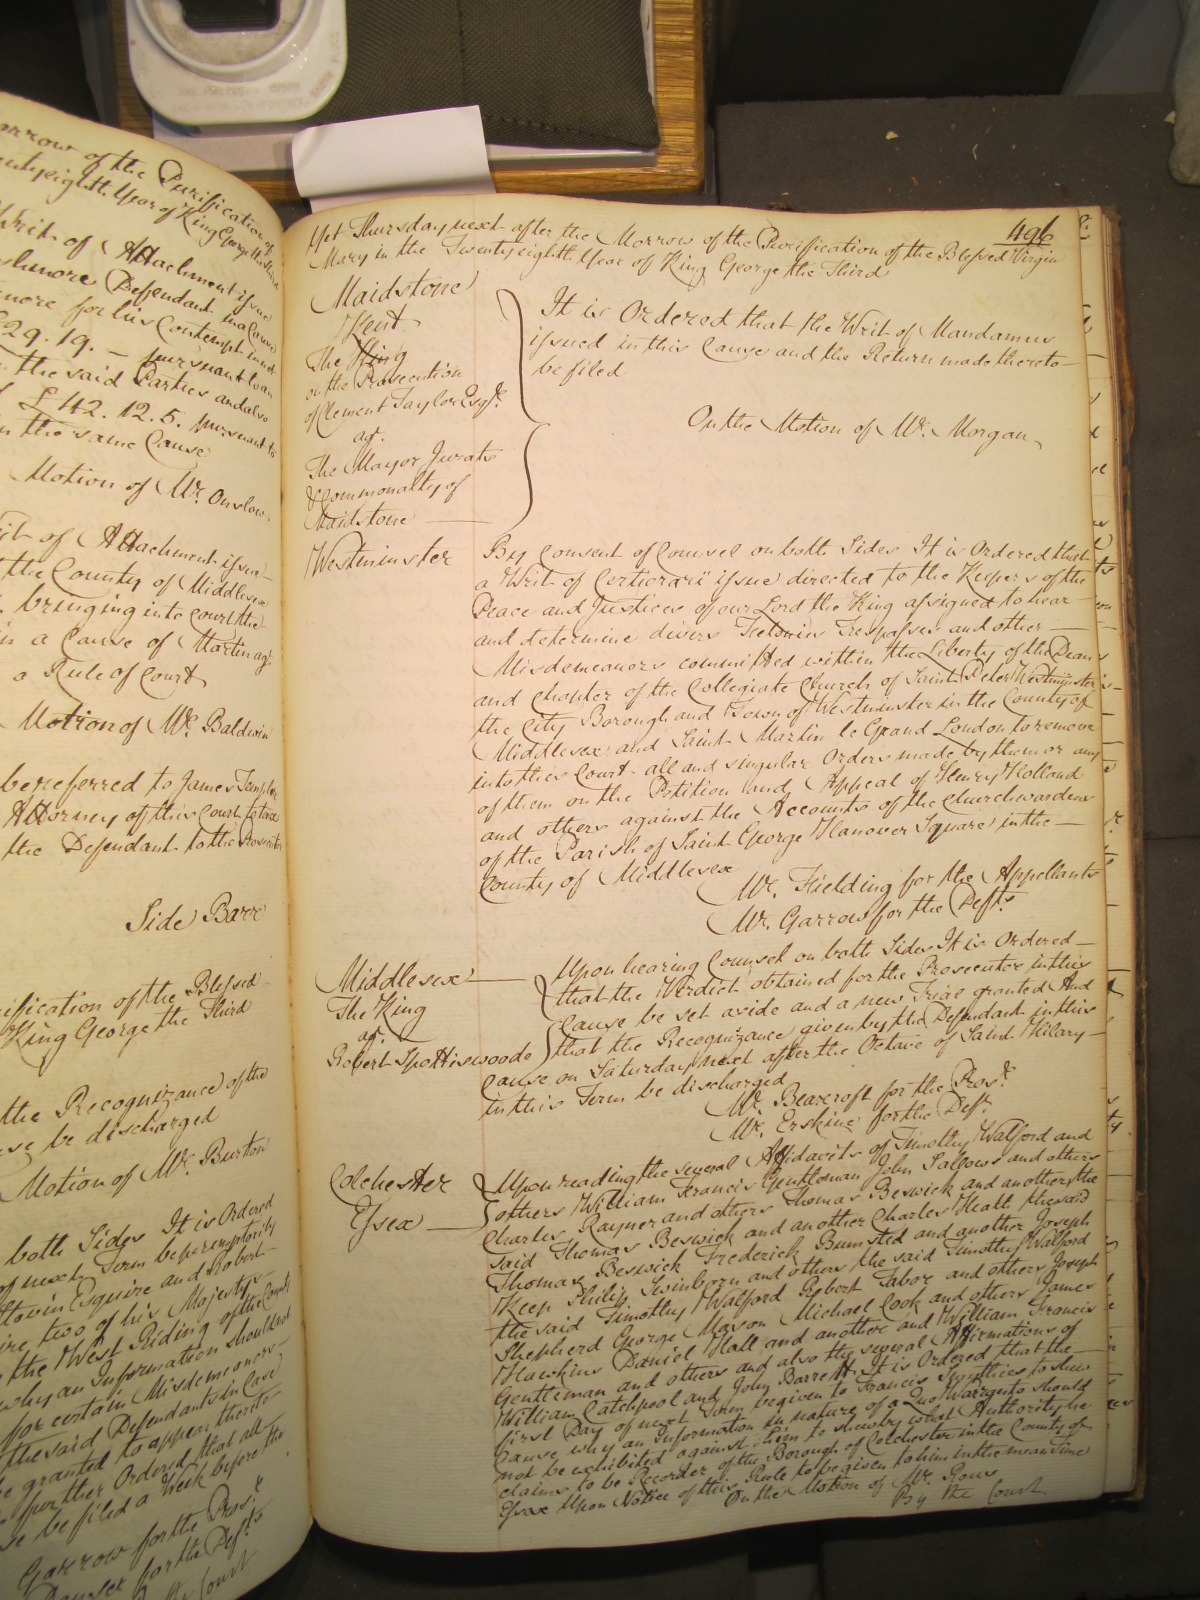 orrow of the Purification of
entyeighth Year of King George the Third
Writ of Attachment issue
shmore Defendant in a Cause
more for his Contempt in not
£29. 19. — pursuant to an
the said Parties and also
£42. 12. 5. pursuant to
n the same Cause
Motion of Mr. Onslow
rit of Attachment issue
the County of Middlesex
bringing into Court the
in a Cause of Martin agt.
a Rule of Court
Motion of Mr. Baldwin
be referred to James Templer
Attorney of this Court to tax
the Defendant to the Prosecutor
Side Barr
rification of the Blessed
King George the Third
the Recognizance of the
se be discharged
Motion of Mr. Burton
both Sides It is Ordered
of next Term be peremptorily
Esquire and Robert
ire, two of his Majestys
the West Riding of the County
why an Information should not
for certain Misdemeanors
the said Defendants in Case
be granted to appear thereto
further Ordered that all
se be filed a Week before the
Garrow for the Prosr.
for the Defts.
Court
496
Yet Thursday next after the Morrow of the Purification of the Blessed Virgin
Mary in the Twentyeighth Year of King George the Third
Maidstone
Kent
The King
on the Prosecution
of Clement Taylor Esqr.
agt.
The Mayor Jurats
& Commonalty of
Maidstone —
It is Ordered that the Writ of Mandamus
issued in this Cause and the Return made thereto—
be filed
On the Motion of Mr. Morgan
Westminster
By Consent of Counsel on both Sides It is Ordered that
a Writ of Certiorari issue directed to the Keepers of the
Peace and Justices of our Lord the King assigned to hear—
and determine divers Felonies Trespasses and other —
Misdemeanors committed within the Liberty of the Dean
and Chapter of the Collegiate Church of Saint Peter Westminster
the City Borough and Town of Westminster in the County of
Middlesex and Saint Martin le Grand London to remove
into this Court all and singular Orders made by them or any
of them on the Petition and Appeal of Henry Holland
and others against the Accounts of the Churchwardens
of the Parish of Saint George Hanover Square in the —
County of Middlesex
Mr. Fielding for the Appellants
Mr. Garrow for the Defts.
Middlesex —
The King
agt.
Robert Spottiswoode
Upon hearing Counsel on both Sides It is Ordered —
that the Verdict obtained for the Prosecutor in this
Cause be set aside and a new Trial granted And
that the Recognizance given by the Defendant in this
Cause on Saturday next after the Octave of Saint Hilary—
in this Term be discharged
Mr. Bearcroft for the Prosr.
Mr. Erskine for the Deft.
Colchester
Essex —
Upon reading the several Affidavits of Timothy Walford and
others William Francis Gentleman John Sallows and others
Charles Rayner and others Thomas Beswick and another the
said Thomas Beswick and another Charles Heath the said
Thomas Beswick Frederick Bumsted and another Joseph
Keep Philip Swinborn and others the said Timothy Walford
the said Timothy Walford Robert Tabor and others Joseph
Shepherd George Mason Michael Cook and others James
Hawkins Daniel Hall and another and William Francis
Gentleman and others and also the several Affirmations of
William Catchpool and John Barrett It is Ordered that the
first Day of next Term be given to Francis Smythies to shew
Cause why an Information in nature of a Quo Warranto should
not be exhibited against him to shew by what Authority he
claims to be Recorder of the Borough of Colchester in the County of
Essex Upon Notice of this Rule to be given to him in the mean Time
On the Motion of Mr. Rous
By the Court